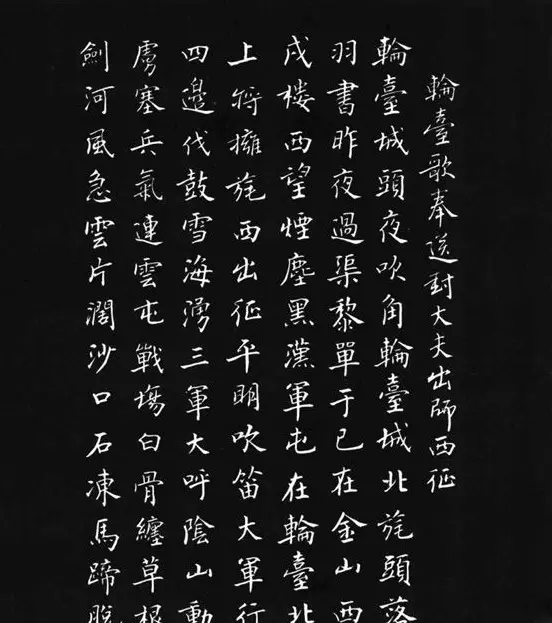 輪臺歌奉送封大夫出師西征
輪臺城頭夜吹角輪臺城北旄頭落
羽書昨夜過渠黎單于已在金山西
戍楼西望煙塵黑漢軍屯在輪臺北
上將擁旄西出征平明吹笛大軍行
四邊伐鼓雪海湧三軍大呼陰山動
虜塞兵氣連雲屯戰場白骨纏草根
劍河風急雲片濶沙口石凍馬蹄脫